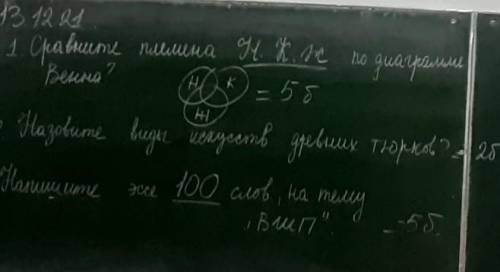 13 12 21
1. Сравните племена Н. К. Ж по диаграмме
Венна?
Н К = 5 б
Ж
Назовите виды искусств древних тюрков? = 2б
Напишите эссе 100 слов, на тему
"ВШП". = 5б.